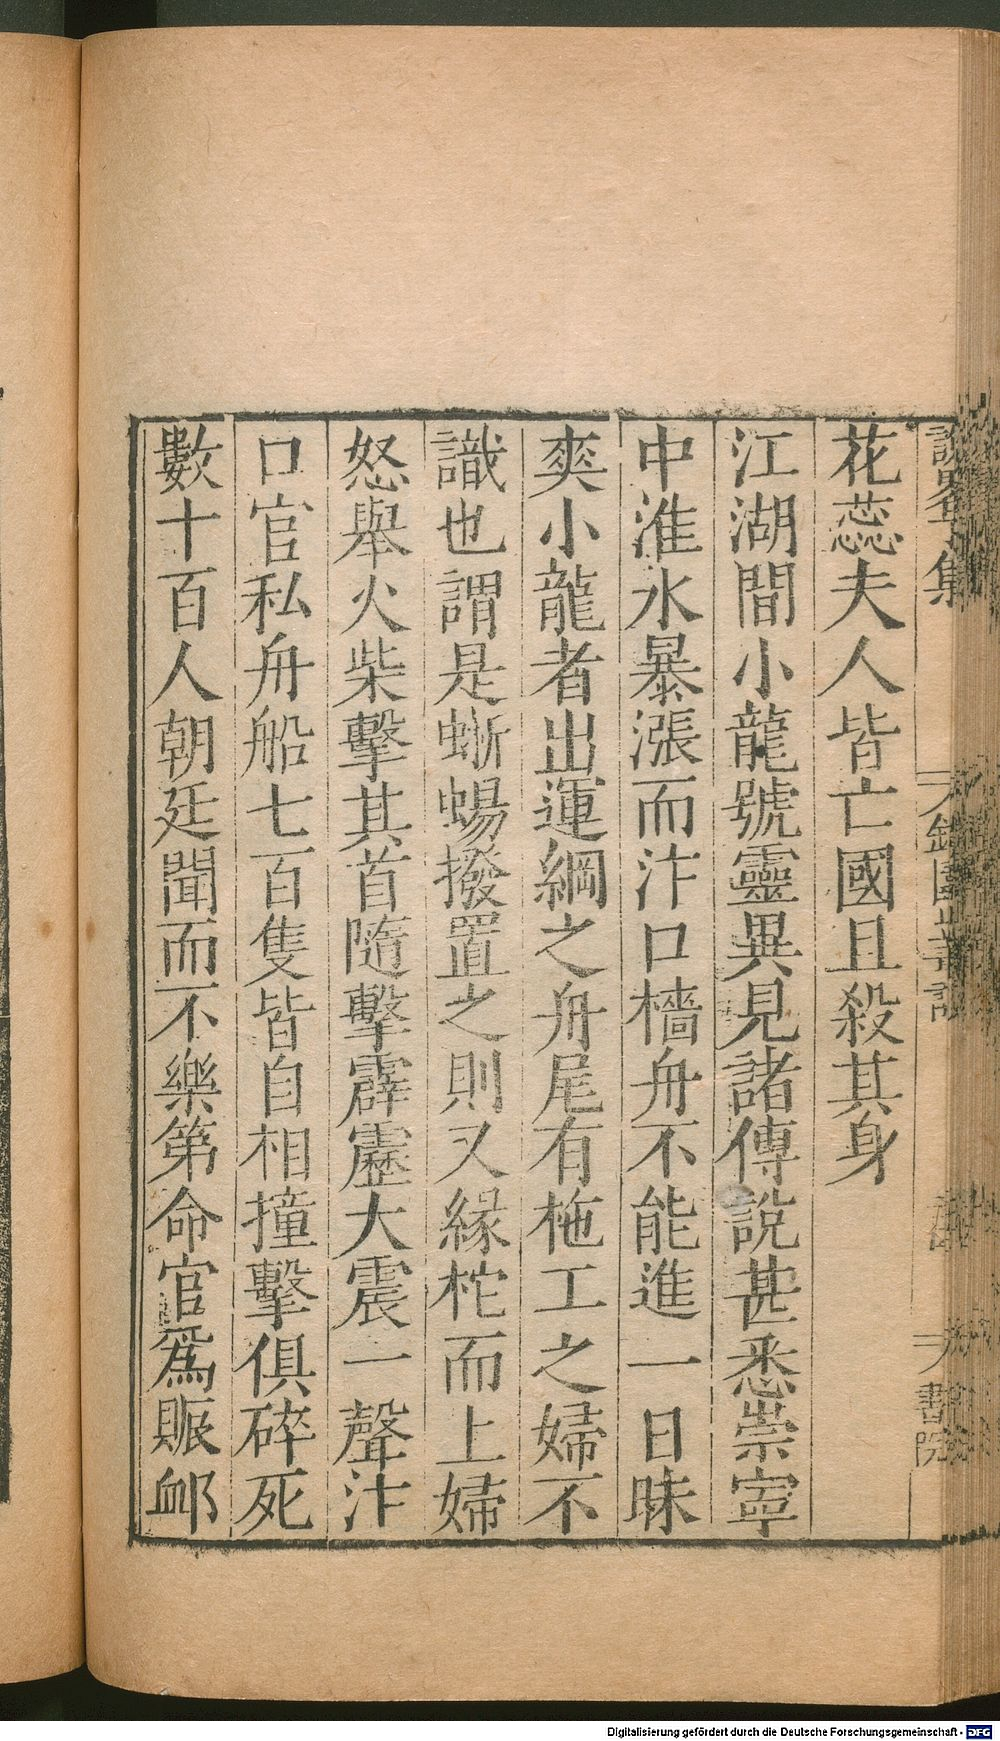 花蕊夫人皆亡國且殺其身
江湖間小龍號靈異見諸傳說甚悉崇寧
中淮水暴漲而汴口檣舟不能進一日昧
爽小龍者出運綱之舟尾有柂工之婦不
識也謂是蜥蜴撥置之則又緣柁而上婦
怒舉火柴擊其首隨擊霹靂大震一聲汴
口官私舟船七百隻皆自相撞擊俱碎死
數十百人朝廷聞而不樂第命官爲賑䘏
書院
Digitalisierung gefördert durch die Deutsche Forschungsgemeinschaft - DFG